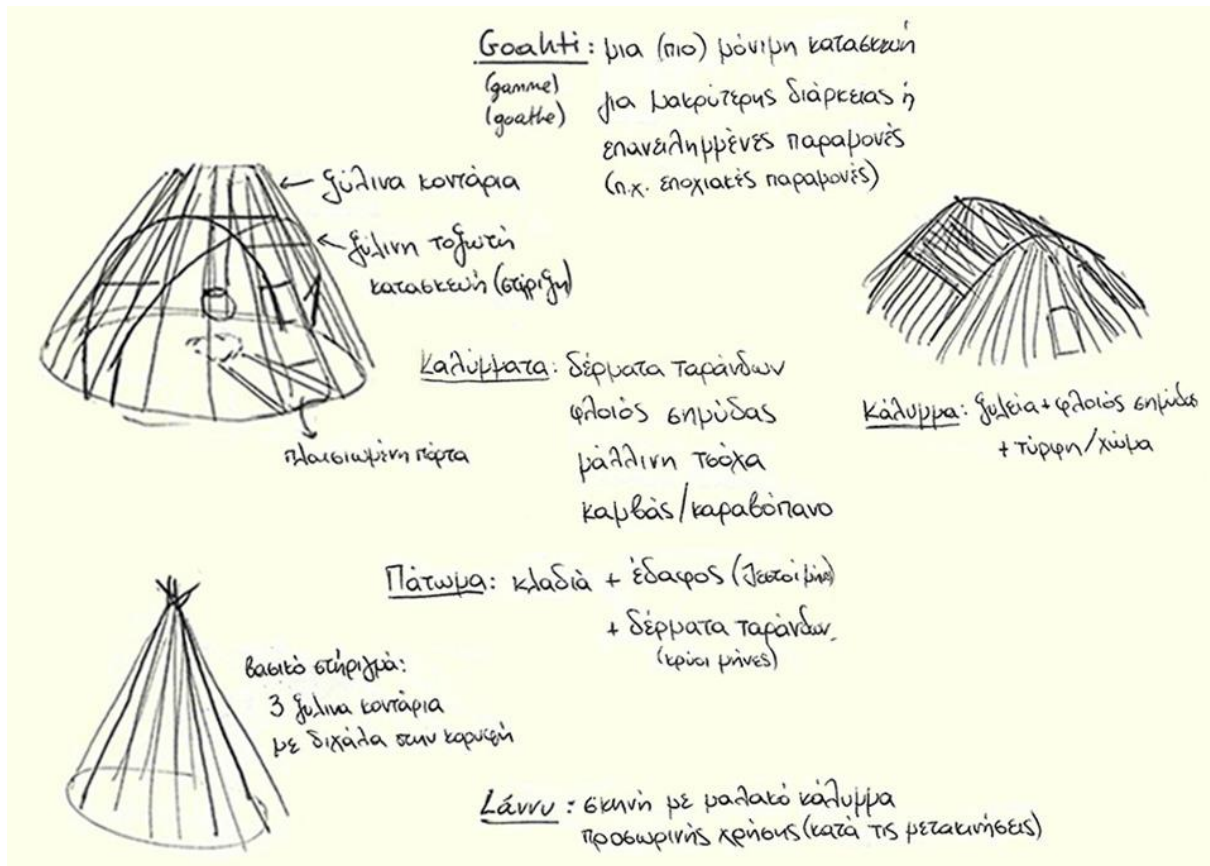 Goahti: μια (πιο) μόνιμη κατασκευή
(gamme)
(goathe)
για μακρύτερης διάρκειας ή
επανειλημμένες παραμονές
(π.χ. εποχιακές παραμονές)
ξύλινα κοντάρια
ξύλινη τοξωτή
κατασκευή (στήριξη)
πλαισιωμένη πόρτα
Καλύμματα: δέρματα ταράνδων
φλοιός σημύδας
μάλλινη τσόχα
καμβάς/καραβόπανο
Κάλυμμα: ξυλεία + φλοιός σημύδας
+ τύρφη/χώμα
Πάτωμα: κλαδιά + έδαφος (ζεστοί μήνες)
+ δέρματα ταράνδων
(κρύοι μήνες)
βασικό στήριγμά:
3 ξυλινα κοντάρια
με διχάλα στην κορυφή
Lávvu: σκηνή με μαλακό κάλυμμα
προσωρινής χρήσης (κατά τις μετακινήσεις)